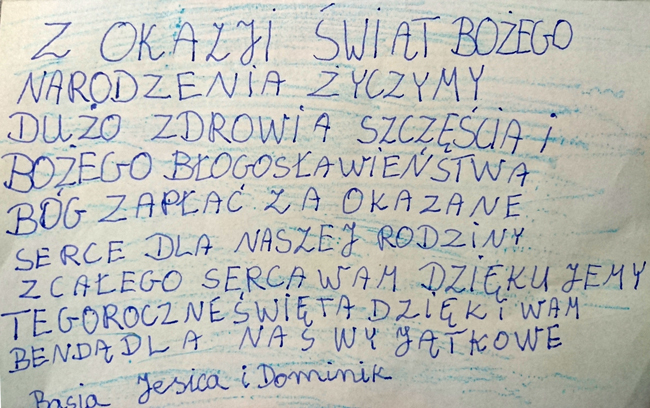 Z OKAZJI ŚWIĄT BOŻEGO
NARODZENIA ŻYCZYMY
DUŻO ZDROWIA SZCZĘŚCIA I
BOŻEGO BŁOGOSŁAWIEŃSTWA
BÓG ZAPŁAĆ ZA OKAZANE
SERCE DLA NASZEJ RODZINY
Z CAŁEGO SERCA WAM DZIĘKUJEMY
TEGOROCZNE ŚWIĘTA DZIĘKI WAM
BENDĄ DLA NAS WYJĄTKOWE
Basia Jesica i Dominik